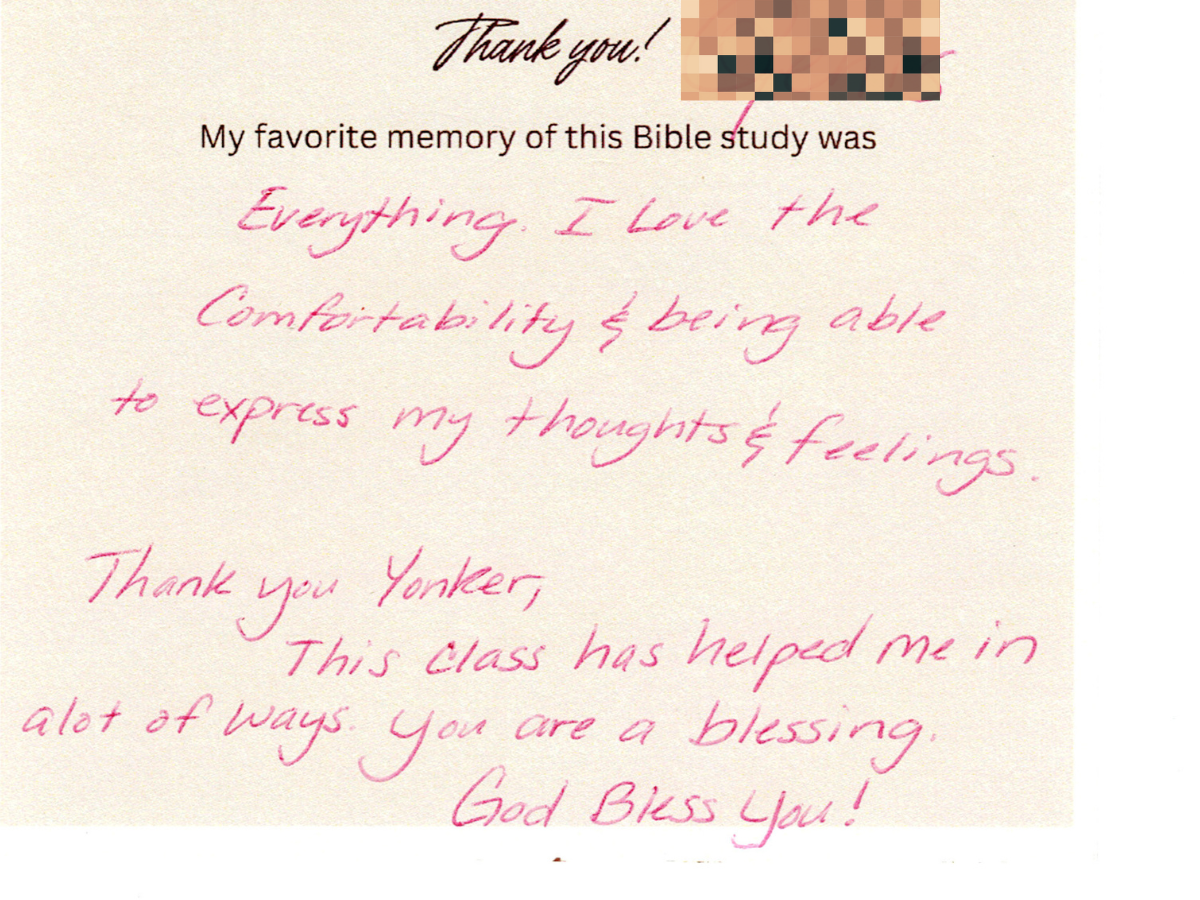 Thank you!
My favorite memory of this Bible study was
Everything. I Love the
Comfortability & being able
to express my thoughts & feelings.
Thank you Yonker,
This class has helped me in
alot of ways. You are a blessing.
God Bless You!